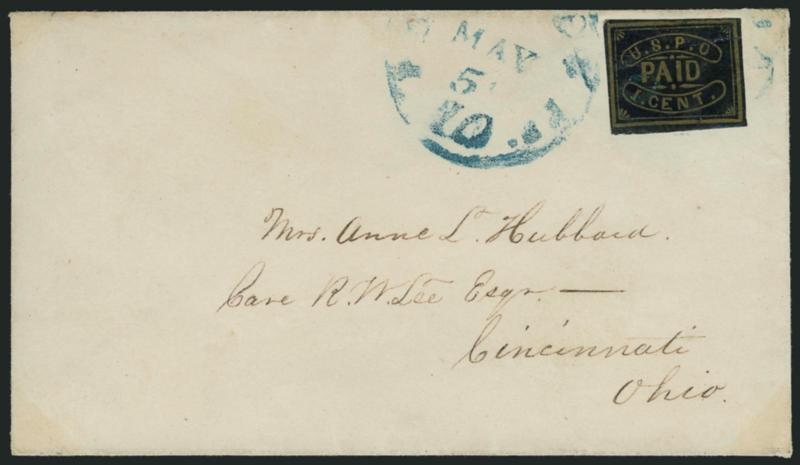 MAY
5
10
U.S.P.O
PAID
1.CENT.
Mrs. Anne L. Hubbard.
Care R.W. Lee Esqr. —
Cincinnati
Ohio.